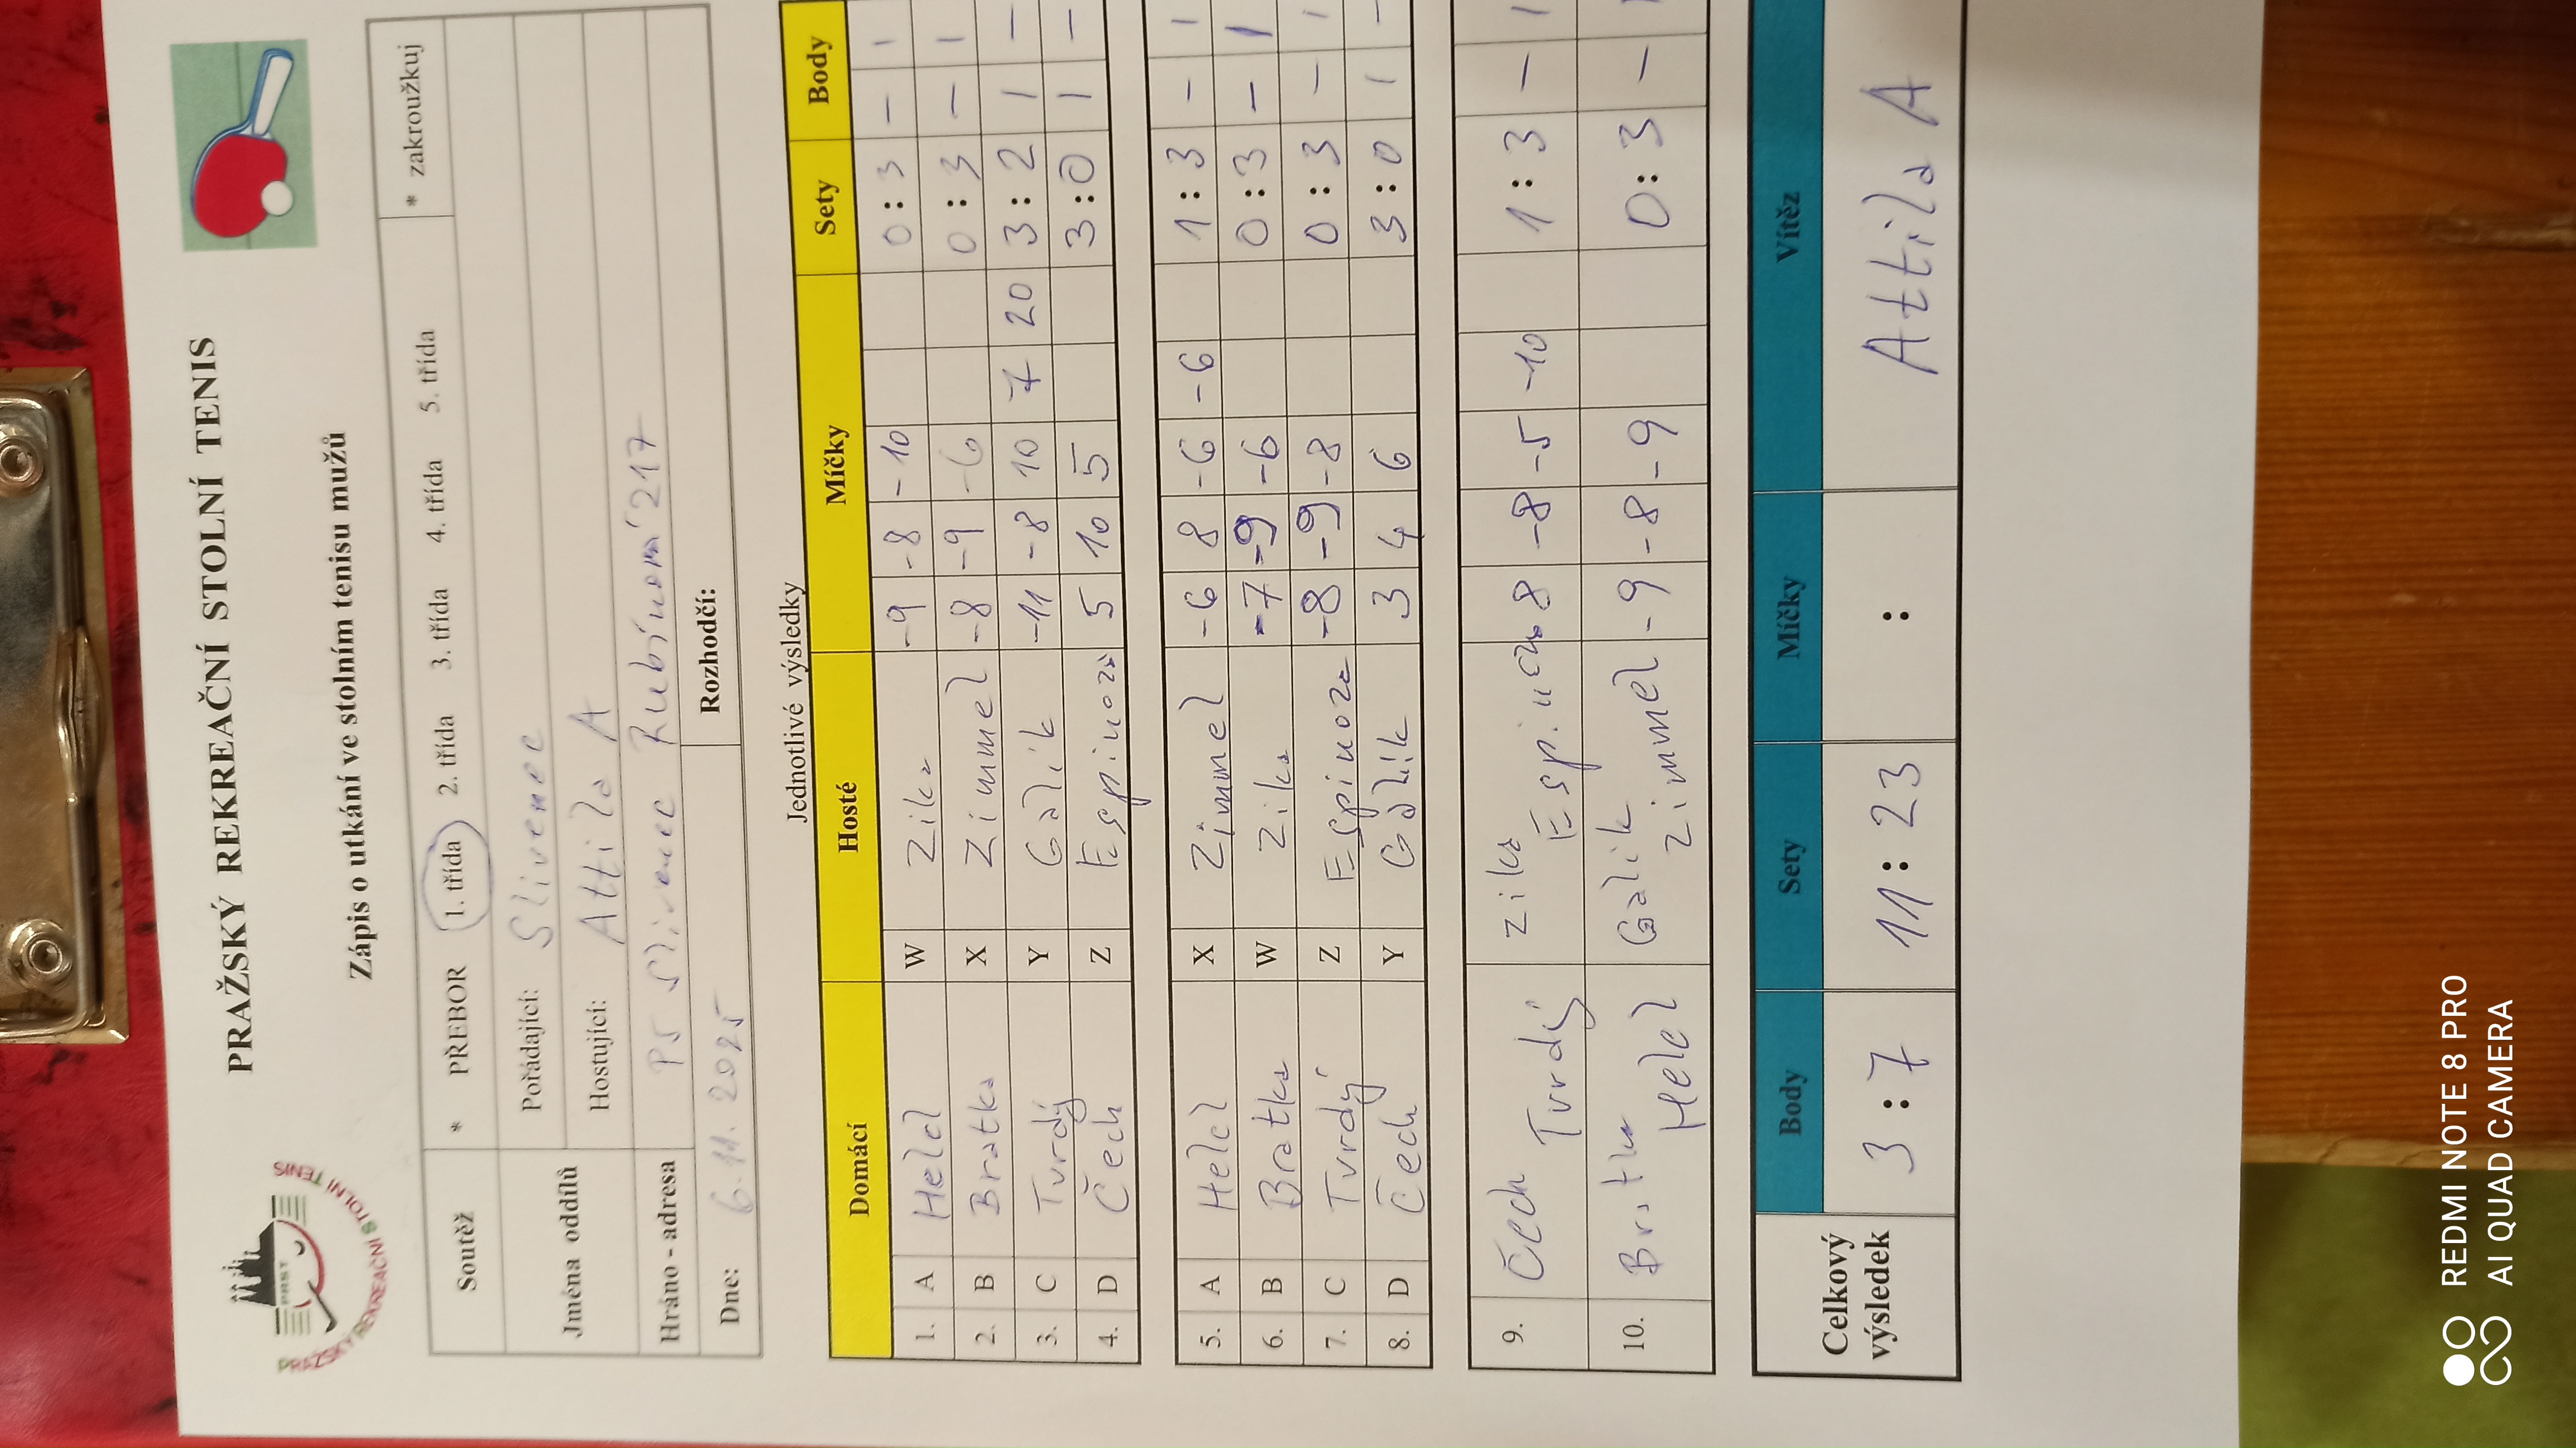 PRAŽSKÝ REKREAČNÍ STOLNÍ TENIS
PRST
PRAŽSKÝ REKREAČNÍ STOLNÍ TENIS
Zápis o utkání ve stolním tenisu mužů
Soutěž * PŘEBOR 1. třída 2. třída 3. třída 4. třída 5. třída * zakroužkuj
Jména oddílů Pořádající: Slivenec
Hostující: Attila A
Hráno - adresa P5 Slivenec Rubínová 217
Dne: 6.11.2025 Rozhodčí:
Jednotlivé výsledky
Domácí Hosté Míčky Sety Body
1. A Helcl W Zika -9 -8 -10 0 : 3 - 1
2. B Bratka X Zimmel -8 -9 -6 0 : 3 - 1
3. C Tvrdý Y Galik -11 -8 10 7 20 3 : 2 1 -
4. D Čech Z Espinoza 5 10 5 3 : 0 1 -
5. A Helcl X Zimmel -6 8 -6 -6 1 : 3 - 1
6. B Bratka W Zika -7 -9 -6 0 : 3 - 1
7. C Tvrdý Z Espinoza -8 -9 -8 0 : 3 - 1
8. D Čech Y Galik 3 4 6 3 : 0 1 -
9. Čech Tvrdý Zika 8 -8 -5 -10 1 : 3 - 1
10. Helcl Galik Zimmel -9 -8 -9 0 : 3 - 1
Celkový výsledek
Body Sety Míčky Vítěz
3 : 7 11 : 23 : Attila A
REDMI NOTE 8 PRO
AI QUAD CAMERA